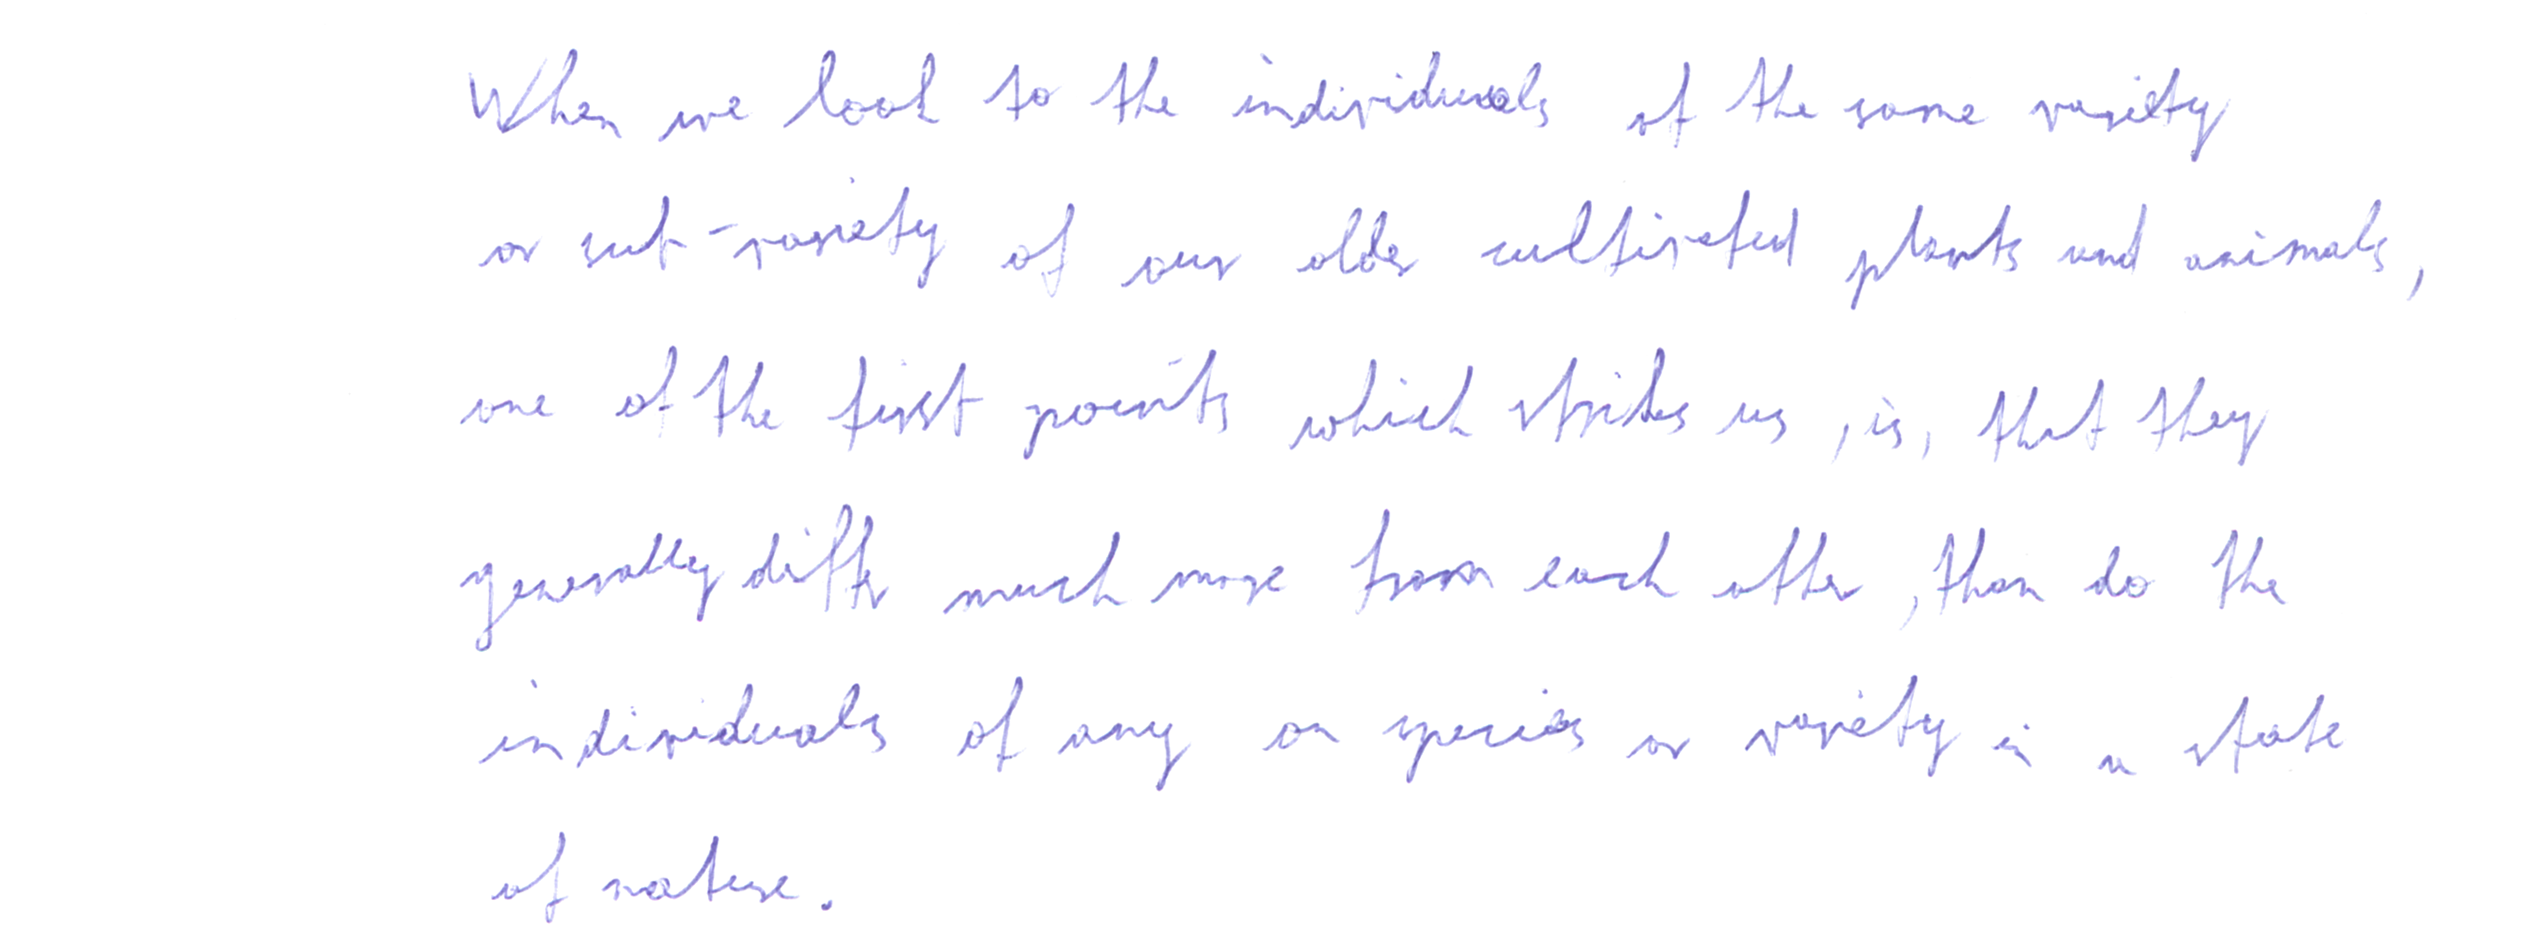 When we look to the individuals of the same variety
or sub-variety of our older cultivated plants and animals,
one of the first points which strikes us, is, that they
generally differ much more from each other, than do the
individuals of any on species or variety in a state
of nature.